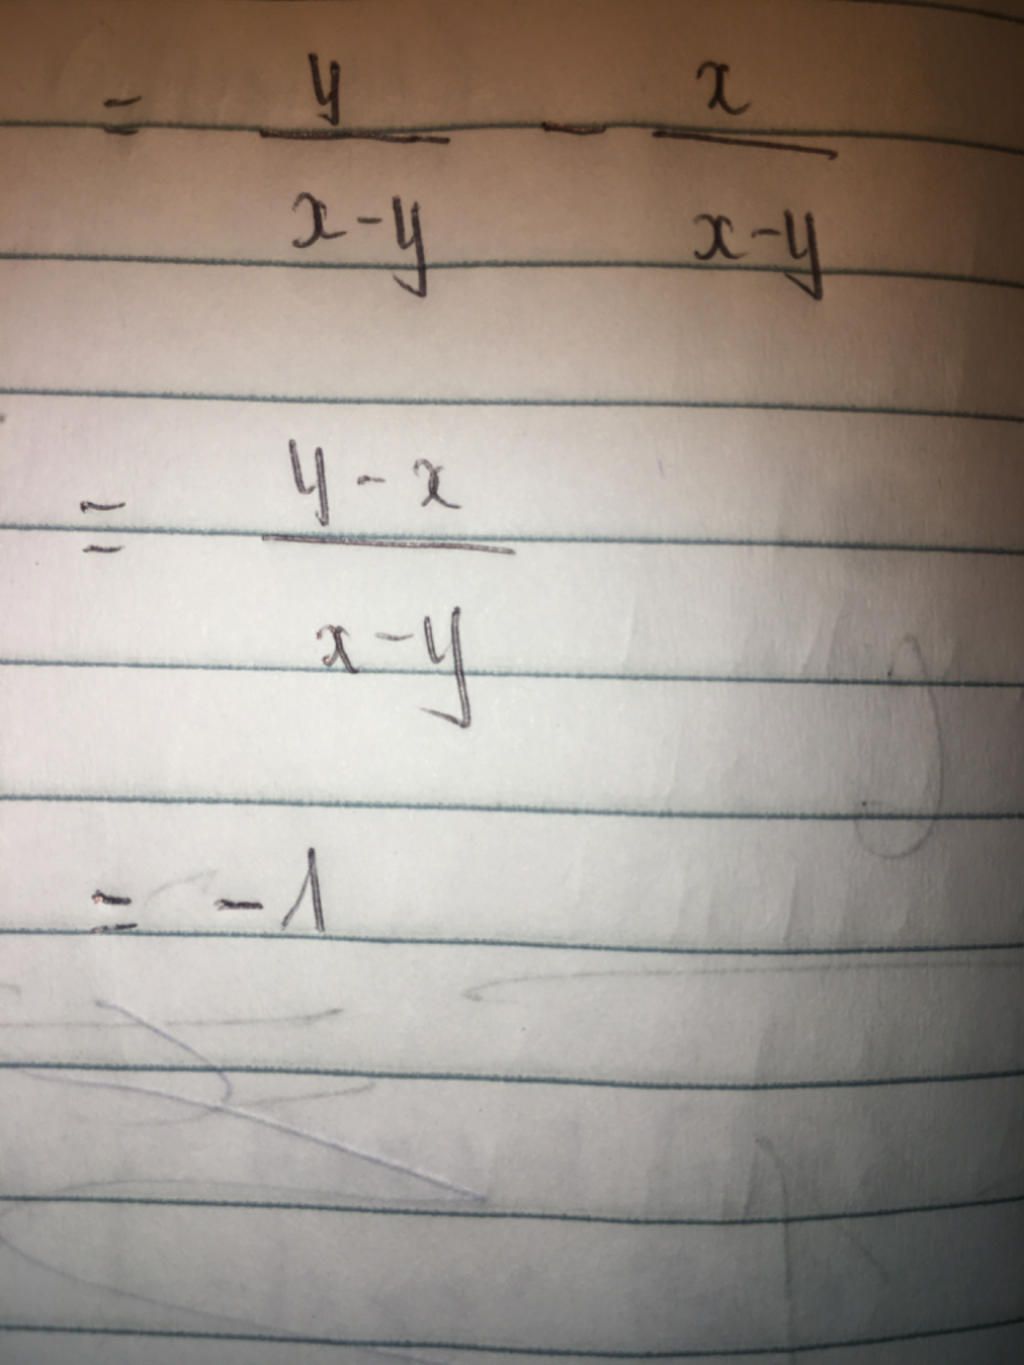 = y/(x-y) - x/(x-y)
= (y-x)/(x-y)
= -1